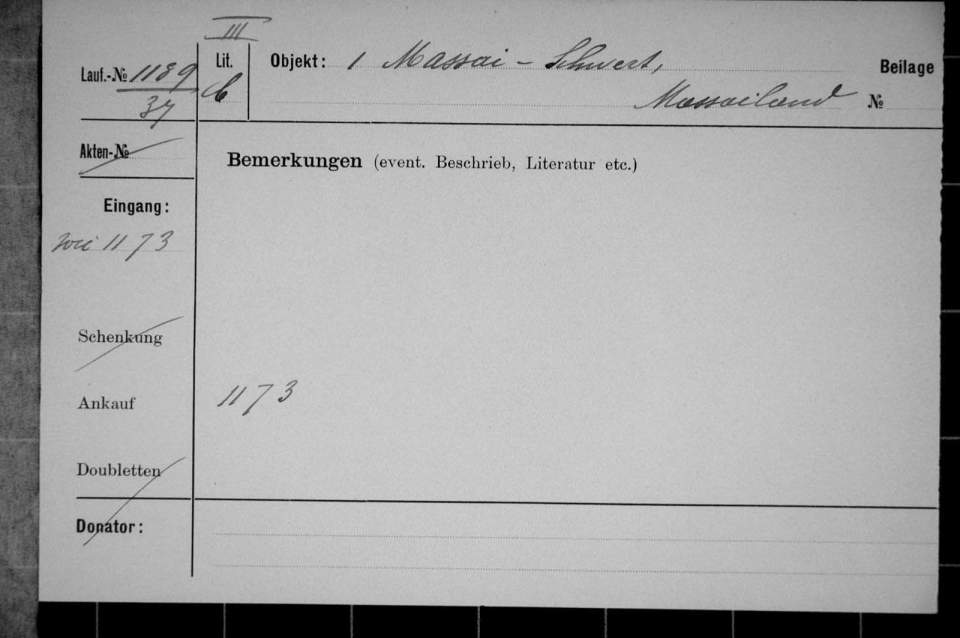 III
Lauf.-№ 1189 Lit. C Objekt: 1 Massai - Schwert, Beilage
37 Massailand №
Akten-№
Bemerkungen (event. Beschrieb, Literatur etc.)
Eingang:
wie 1173
Schenkung
Ankauf 1173
Doubletten
Donator: